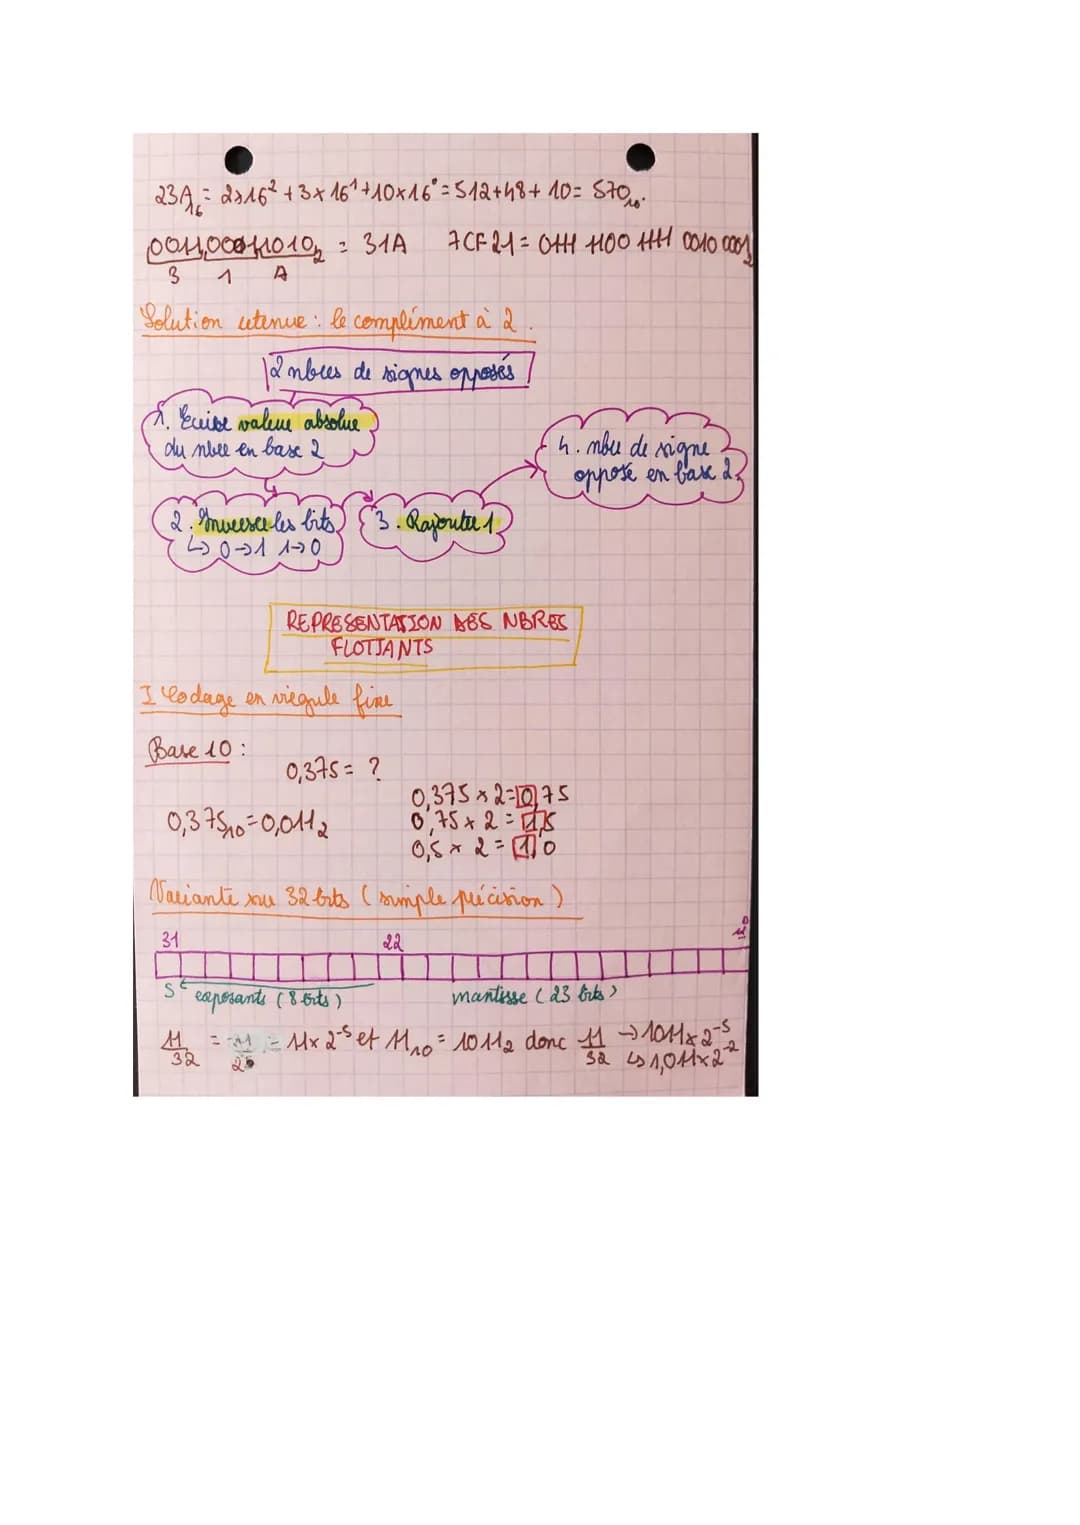 23A₁₆ = 2×16² + 3×16¹ + 10×16⁰ = 512 + 48 + 10 = 570₁₀.
0011 0001 1010₂ = 31A 7CF21 = 0111 1100 1111 0010 0001₂
3 1 A
Solution retenue : le complément à 2.
2 nbres de signes opposés
1. Ecrire valeur absolue
du nbre en base 2
4. nbre de signe
opposé en base 2
2. Inverser les bits
↳ 0→1 1→0
3. Rajouter 1
REPRESENTATION DES NBRES
FLOTTANTS
I Codage en virgule fixe
Base 10 :
0,375 = ?
0,375 × 2 = 0,75
0,375₁₀ = 0,011₂
0,75 × 2 = 1,5
0,5 × 2 = 1,0
Variante sur 32 bits (simple précision)
31 22 0
S exposants (8 bits) mantisse (23 bits)
11/32 = 11/2⁵ = 11 × 2⁻⁵ et 11₁₀ = 1011₂ donc 11/32 → 1011 × 2⁻⁵
↳ 1,011 × 2⁻²